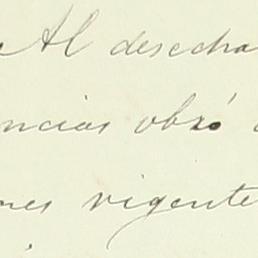 Al desecha
ncias obró
nes vigente